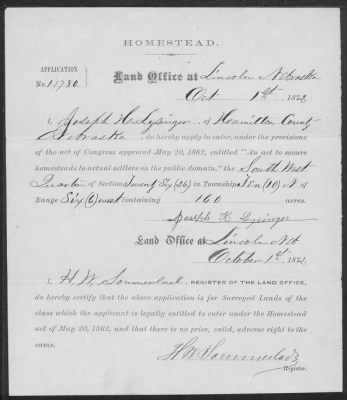 HOMESTEAD.
APPLICATION
No. 11780
Land Office at Lincoln Nebraska
Oct 1st, 1872
I, Joseph H. Lysinger, of Hamilton County
Nebraska, do hereby apply to enter, under the provisions
of the act of Congress approved May 20, 1862, entitled "An act to secure
homesteads to actual settlers on the public domain," the South West
Quarter of Section Twenty Six (26) in Township Ten (10) N of
Range Six (6) west containing 160 acres.
Joseph H Lysinger
Land Office at Lincoln Neb
October 1st, 187
I, H. W. Sommerlad, REGISTER OF THE LAND OFFICE,
do hereby certify that the above application is for Surveyed Lands of the
class which the applicant is legally entitled to enter under the Homestead
act of May 20, 1862, and that there is no prior, valid, adverse right to the
same.
H W Sommerlad
Register.